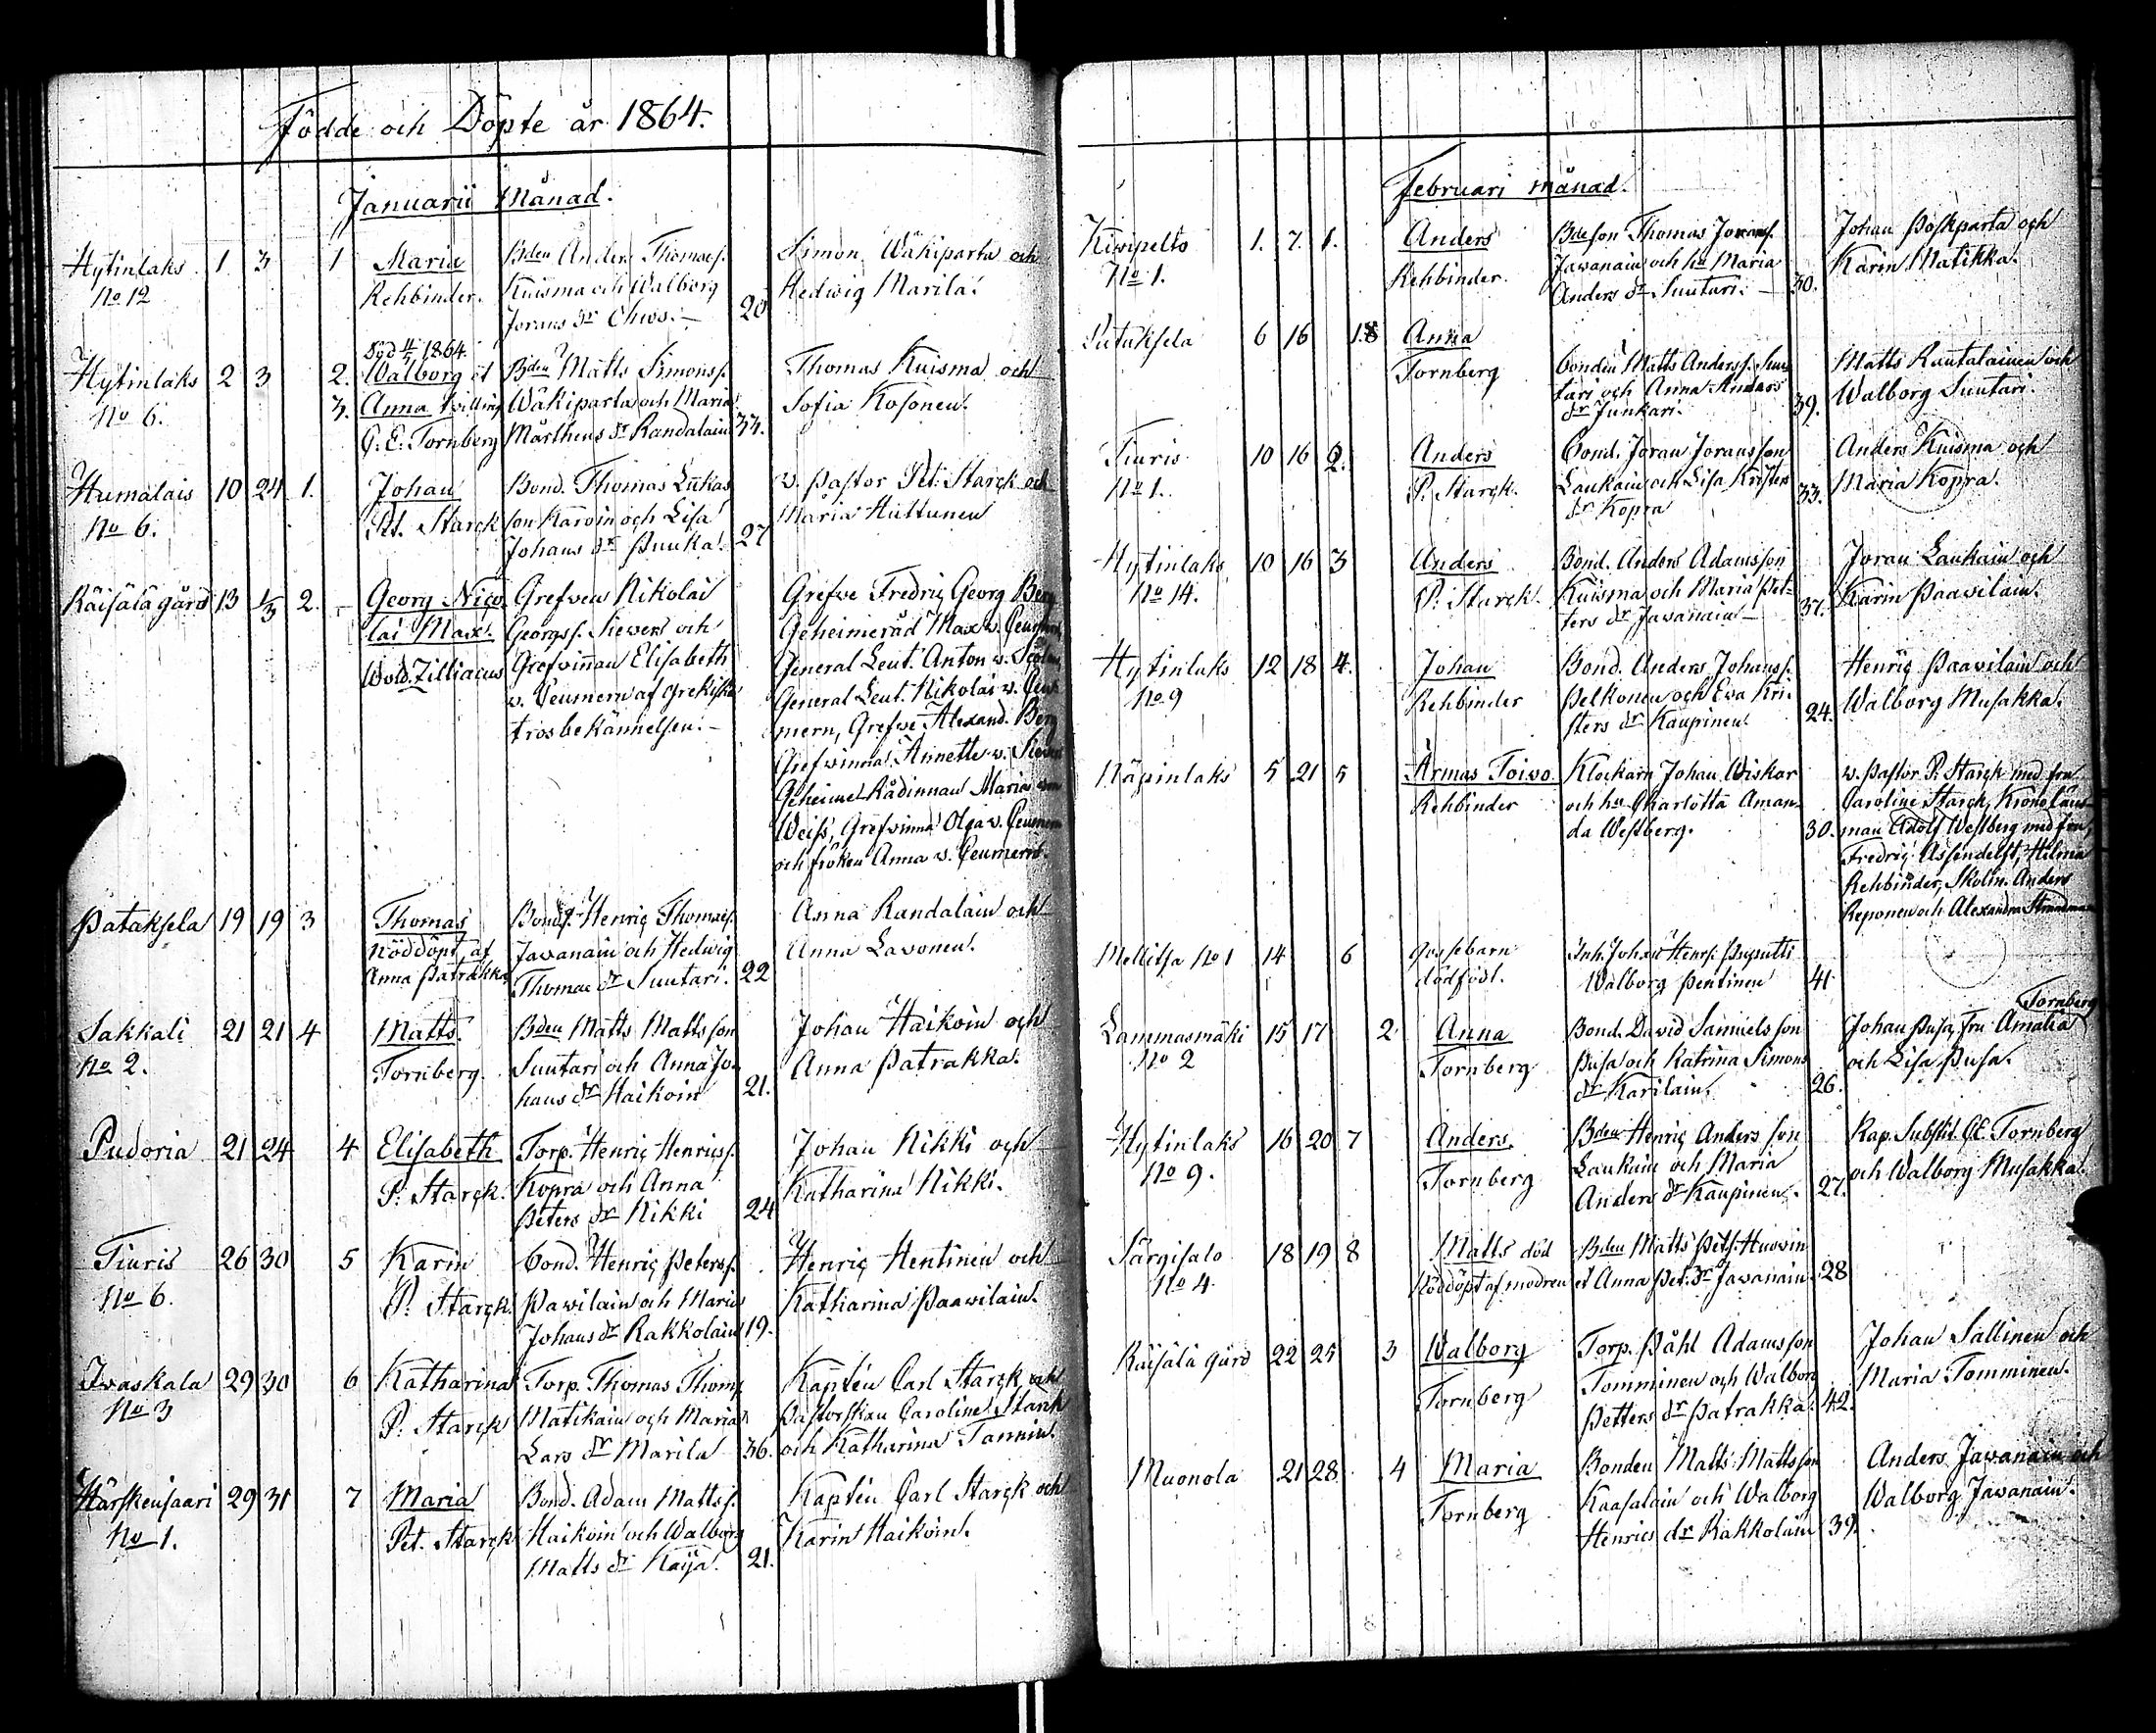 Födde och Döpte år 1864.
Januarii Månad.
Hytinlaks 1 3 1 Maria Bden Anders Thomaes. Simon Wäkiparta och
No 12 Rehbinder. Kuisma och Walborg Hedwig Marila.
Jorans dr Chws.— 20
Död 11/5 1864.
Hytinlaks 2 3 2. Walborg et Bden Matts Simonss. Thomas Kuisma och
No 6. 3. Anna tvilling Wäkiparta och Maria Sofia Kosonen.
G. E. Tornberg Mårthens dr Randalain 33.
Humalais 10 24 1. Johan Bond. Thomas Lukas v. Pastor Pet. Starck och
No 6. Pet. Starck son Karvin och Lisa Maria Huttunen
Johans dr Puuka. 27
Räisälä gård 13 1/3 2. Georg Nico Grefven Nikolai Grefve Fredric Georg Berg
lai Max. Georgss. Siewers och Geheimeråd Max v.
Wold. Zilliacus Grefvinnan Elisabeth General Leut. Anton v.
v. Ceumern af grekiska General Leut. Nikolai v. Ceu
trosbekännelsen.— mern, Grefve Alexand. Berg
Grefvinna Annette v.
Geheime Rådinnan Maria von
Weiss, Grefvinna Olga v. Ceumern
och fröken Anna v. Ceumern.
Pataksela 19 19 3 Thomas Bonds. Henric Thomaes. Anna Randalain och
Nöddöpt af Javanain och Hedwig Anna Lavonen.
Anna Patrakka Thomae dr Suutari. 22
Sakkali 21 21 4 Matts. Bden Matts Mattsson Johan Haikoin och
No 2. Tornberg. Suutari och Anna Jo- Anna Patrakka.
hans dr Haikoin 21.
Pudoria 21 24 4 Elisabeth Torp. Henric Henricss. Johan Nikki och
P. Starck. Kopra och Anna Katharina Nikki.
Peters dr Nikki 24
Tiuris 26 30 5 Karin Bond. Henric Peterss. Henric Hentinen och
No 6. P. Starck. Pawilain och Maria Katharina Paawilain.
Johans dr Rakkolain 19.
Ivaskala 29 30 6 Katharina Torp. Thomas Thoms Kapten Carl Starck och
No 3 P. Starck Matikain och Maria Pastorskan Caroline Starck
Lars dr Marila 36. och Katharina Tannin.
Härskensaari 29 31 7 Maria Bond. Adam Mattss. Kapten Carl Starck och
No 1. Pet. Starck Haikoin och Walborg Karin Haikoin.
Matts dr Kaija. 21.
Februari månad.
Kiwipelto 1. 7. 1. Anders Bdeson Thomas Joranss. Johan Poskparta och
No 1. Rehbinder. Javanain och hu Maria Karin Matikka.
Anders dr Suutari.— 30.
6 16 1. Anna
Tornberg Bonden Matts Anderss. Suu Matts Rantalainen och
tari och Anna Anders Walborg Suutari.
dr Junkari. 39.
Tiuris 10 16 2. Anders Bond. Joran Joransson Anders Kuisma och
No 1. P. Starck. Laukain och Lisa Kristers Maria Kopra.
dr Kopra 33.
Hytinlaks 10 16 3 Anders Bond. Anders Adamsson Joran Laukain och
No 14. P. Starck. Kuisma och Maria Pet- Karin Paawilain.
ters dr Javanain— 37.
Hytinlaks 12 18 4. Johan Bond. Anders Johanss. Henric Paavilain och
No 9 Rehbinder Pelkonen och Eva Kri- Walborg Musakka.
sters dr Kaupinen. 24.
Näpinlaks 5 21 5 Armas Toivo Klockarn Johan Wiskar v. Pastor P. Starck med fru
Rehbinder och hu Charlotta Aman- Caroline Starck, Kronoläns-
da Westberg. 30. man Adolf Westberg med fru,
Fredric Assendelft, Hilma
Rehbinder, Skolin. Anders
Reponen och Alexandra
Mellitsa No 1 14 6 Gossebarn Inh. Johan Henrs.
dödfödt. Walborg Pentinen 41
Lammasmäki 15 17 2 Anna Bond. David Samuelsson Johan Pusa, fru Amalia Tornberg
No 2 Tornberg Pusa och Katrina Simons och Lisa Pusa.
dr Karilain. 26.
Hytinlaks 16 20 7 Anders. Bden Henric Andersson Kap. Substit. G.E. Tornberg
No 9. Tornberg Laukain och Maria och Walborg Musakka.
Anders dr Kaupinen. 27.
Särgisalo 18 19 8 Matts död Bden Matts Pets. Huwin
No 4 Nöddöpt af modren et Anna Pet. dr Javanain. 28
Räisälä gård 22 25 3 Walborg Torp. Påhl Adamsson Johan Sallinen och
Tornberg Tomminen och Walborg Maria Tomminen.
Petters dr Patrakka. 42.
Muonola 21 28 4 Maria Bonden Matts Mattsson Anders Javanain och
Tornberg Kaasalain och Walborg Walborg Javanain.
Henrics dr Rakkolain 39.